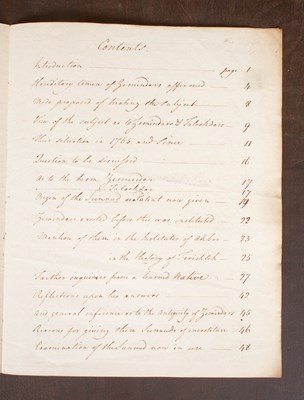 Contents
Introduction page 1
Hereditary tenure of Zemindars affirmed 4
Mode proposed of treating the subject 8
View of the subject as to Zemindars & Talookdars 9
Their situation in 1765 and since 11
Question to be discussed 16
As to the term Zemindar 17
for Talookdar 17
Origin of the Sunnud not now given 19
Zemindars existed before this was instituted 22
Mention of them in the Institutes of Akbar 23
in the History of Ferishteh 25
Farther inquiries from a learned Native 27
Reflections upon his answers 42
And general inference as to the antiquity of Zemindars 45
Reasons for giving them Sunnuds of investiture 46
Examination of the Sunnud now in use 48